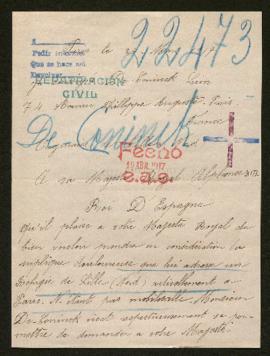 22473
A
Pedir informes
Que se hace así
REPATRIACIÓN
CIVIL
74 Avenue Philippe Auguste Paris
France
De Coninck
FECHO
19 ABR. 1917
A sa Majesté Alphonse XIII
Roi D'Espagne
Qu'il plaise à votre Majesté Royal de
bien vouloir prendre en considération la
supplique douloureuse que lui adresse un
Réfugié de Lille (Nord) actuellement à
Paris. N'étant pas mobilisable Monsieur
De Coninck vient respectueusement se per-
mettre de demander à votre Majesté